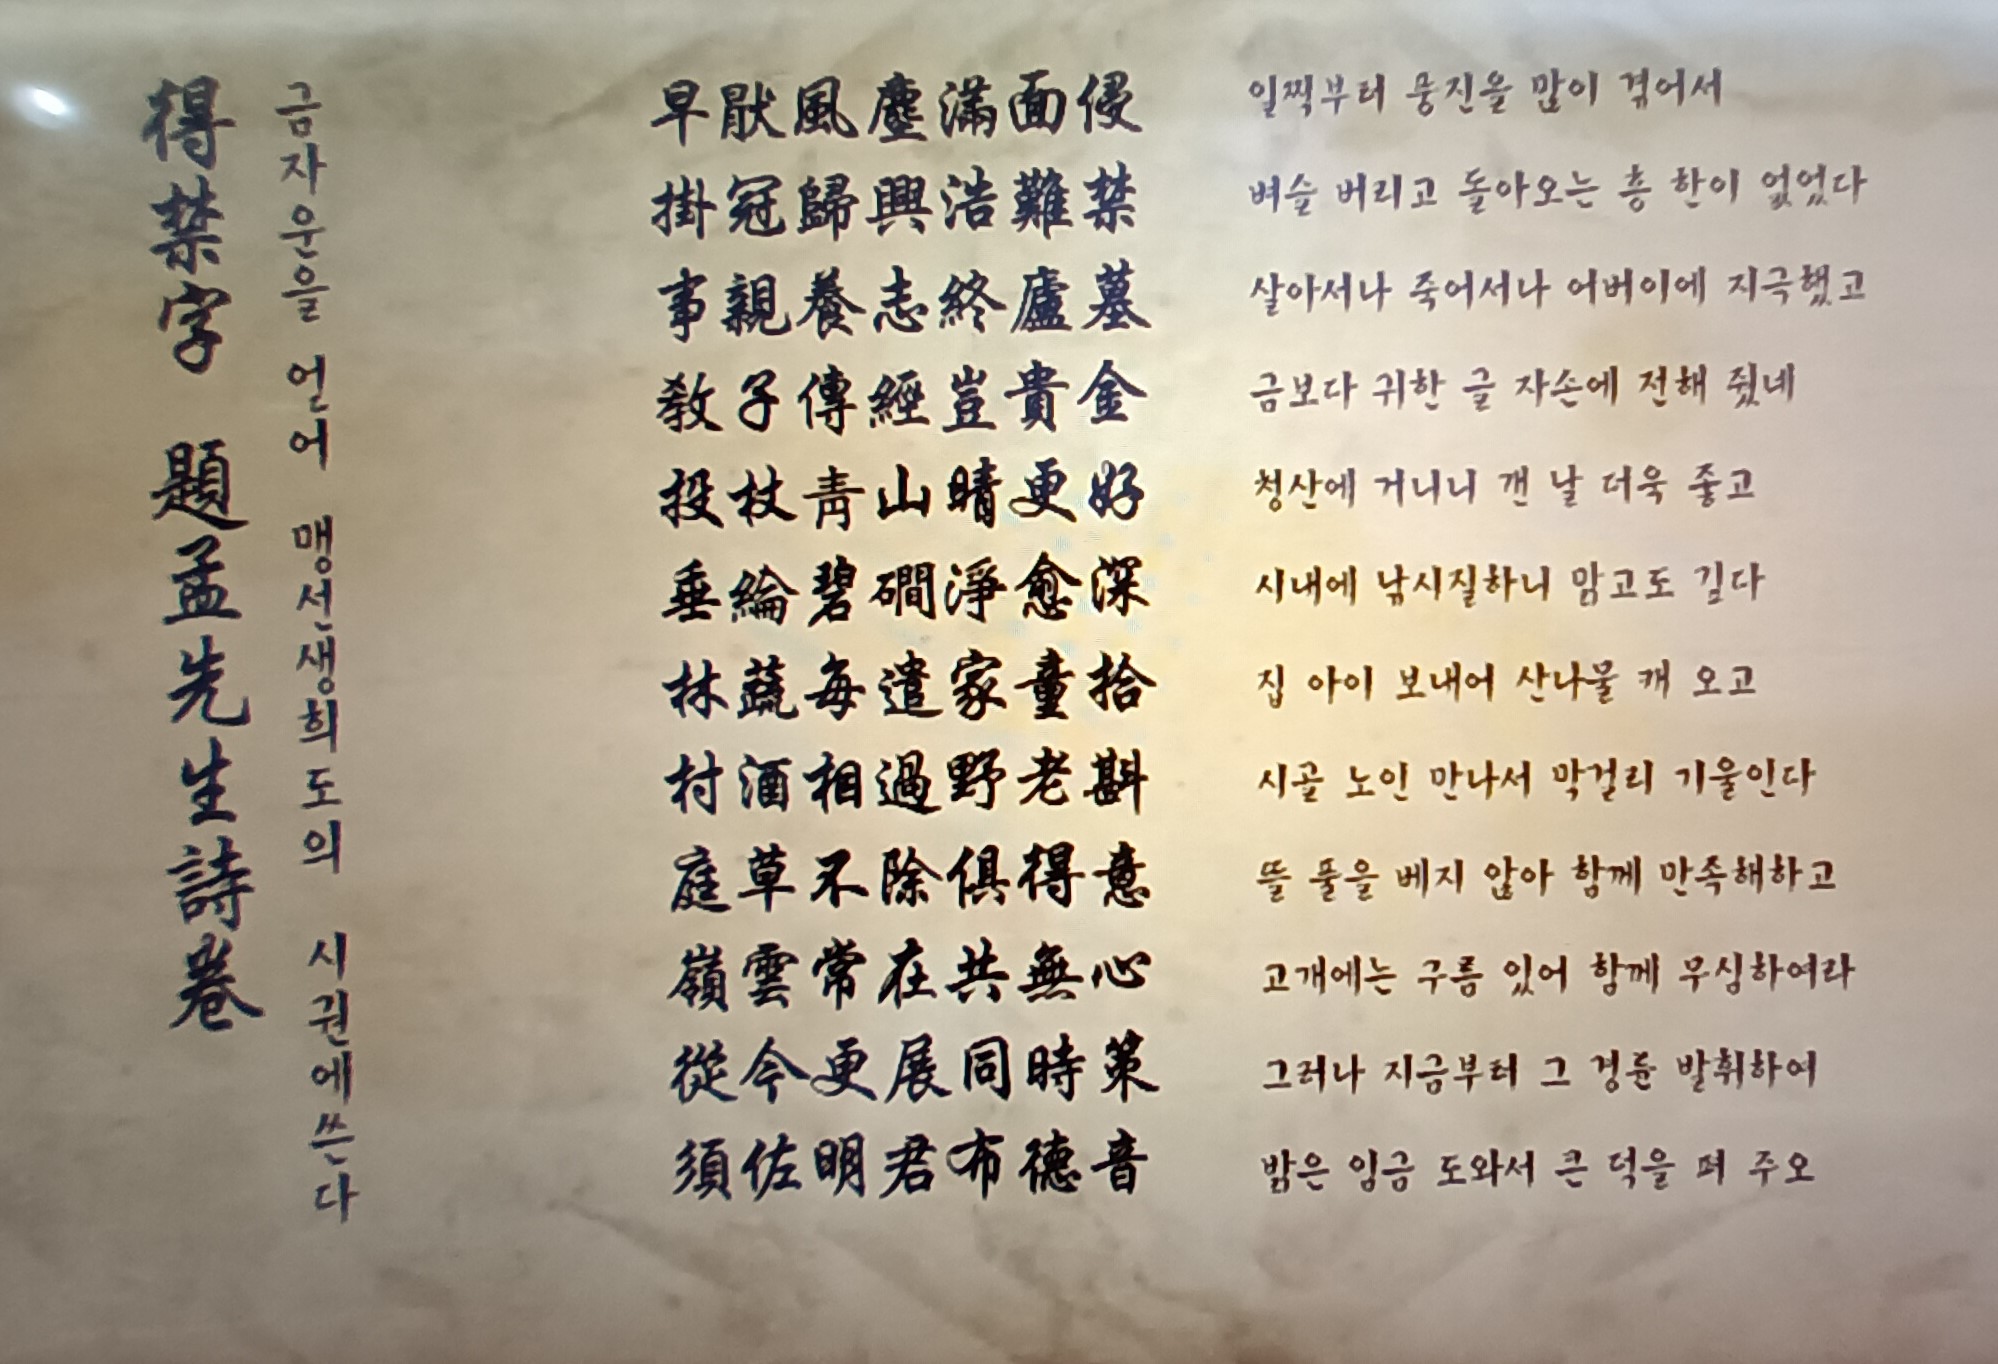 得禁字 題孟先生詩卷
금자운을 얻어 맹선생희도의 시권에쓴다
早厭風塵滿面侵
掛冠歸興浩難禁
事親養志終廬墓
敎子傳經豈貴金
投杖靑山晴更好
垂綸碧磵淨愈深
林蔬每遣家童拾
村酒相過野老斟
庭草不除俱得意
嶺雲常在共無心
從今更展同時策
須佐明君布德音
일찍부터 풍진을 많이 겪어서
벼슬 버리고 돌아오는 흥 한이 없었다
살아서나 죽어서나 어버이에 지극했고
금보다 귀한 글 자손에 전해 줬네
청산에 거니니 갠 날 더욱 좋고
시내에 낚시질하니 맑고도 깊다
집 아이 보내어 산나물 캐 오고
시골 노인 만나서 막걸리 기울인다
뜰 풀을 베지 않아 함께 만족해하고
고개에는 구름 있어 함께 무심하여라
그러나 지금부터 그 경륜 발휘하여
밝은 임금 도와서 큰 덕을 펴 주오